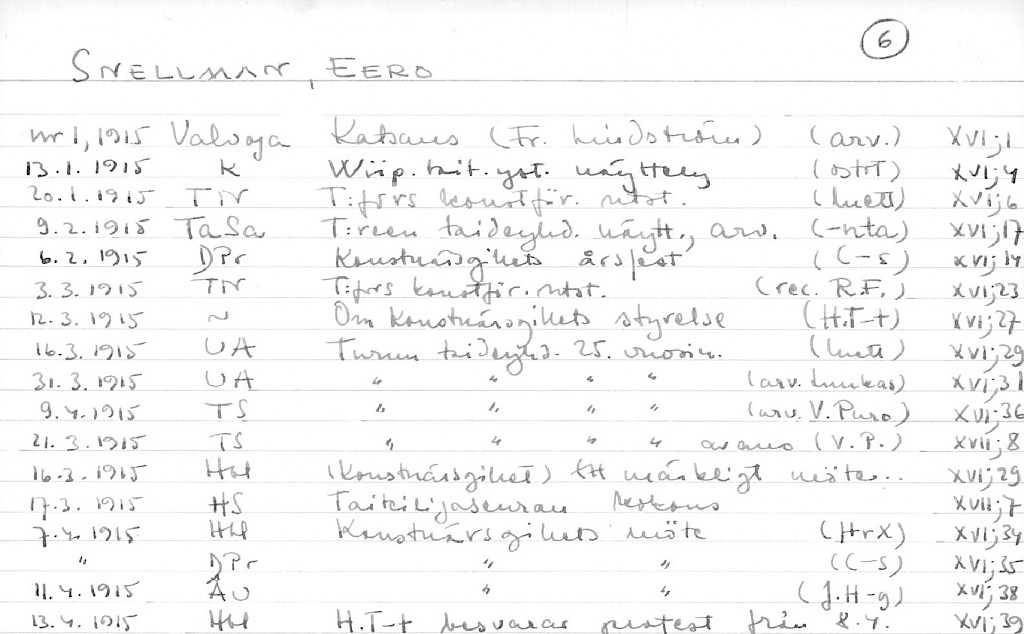 6
SNELLMAN, EERO
nr 1, 1915 Valvoja Katsaus (Fr. Lindström) (arv.) XVI;1
13.1.1915 K Wiip. tait. yst. näyttely (ostot) XVI;4
20.1.1915 TN T:fors konstför. utst. (luett) XVI;6
9.2.1915 TaSa T:reen taideyhd. näytt., arv. (-nta) XVI;17
6.2.1915 DPr Konstnärsgillets årsfest (C-s) XVI;14
3.3.1915 TN T:fors konstför. utst. (rec. R.F.) XVI;23
12.3.1915 ~ Om Konstnärsgillets styrelse (H.T-t) XVI;27
16.3.1915 UA Turun taideyhd. 25. vuosin. (luett) XVI;29
31.3.1915 UA " " " " (arv. Luukas) XVI;31
9.4.1915 TS " " " " (arv. V. Puro) XVI;36
21.3.1915 TS " " " " avaus (V.P.) XVII;8
16.3.1915 Hbl (Konstnärsgillet) Ett märkligt möte..  XVI;29
17.3.1915 HS Taiteilijaseuran kokous XVII;7
7.4.1915 Hbl Konstnärsgillets möte (H-rX) XVI;34
" DPr " " (C-s) XVI;35
11.4.1915 ÅU " " (J.H-g) XVI;38
13.4.1915 Hbl H.T-t besvarar protest från 8.4. XVI;39